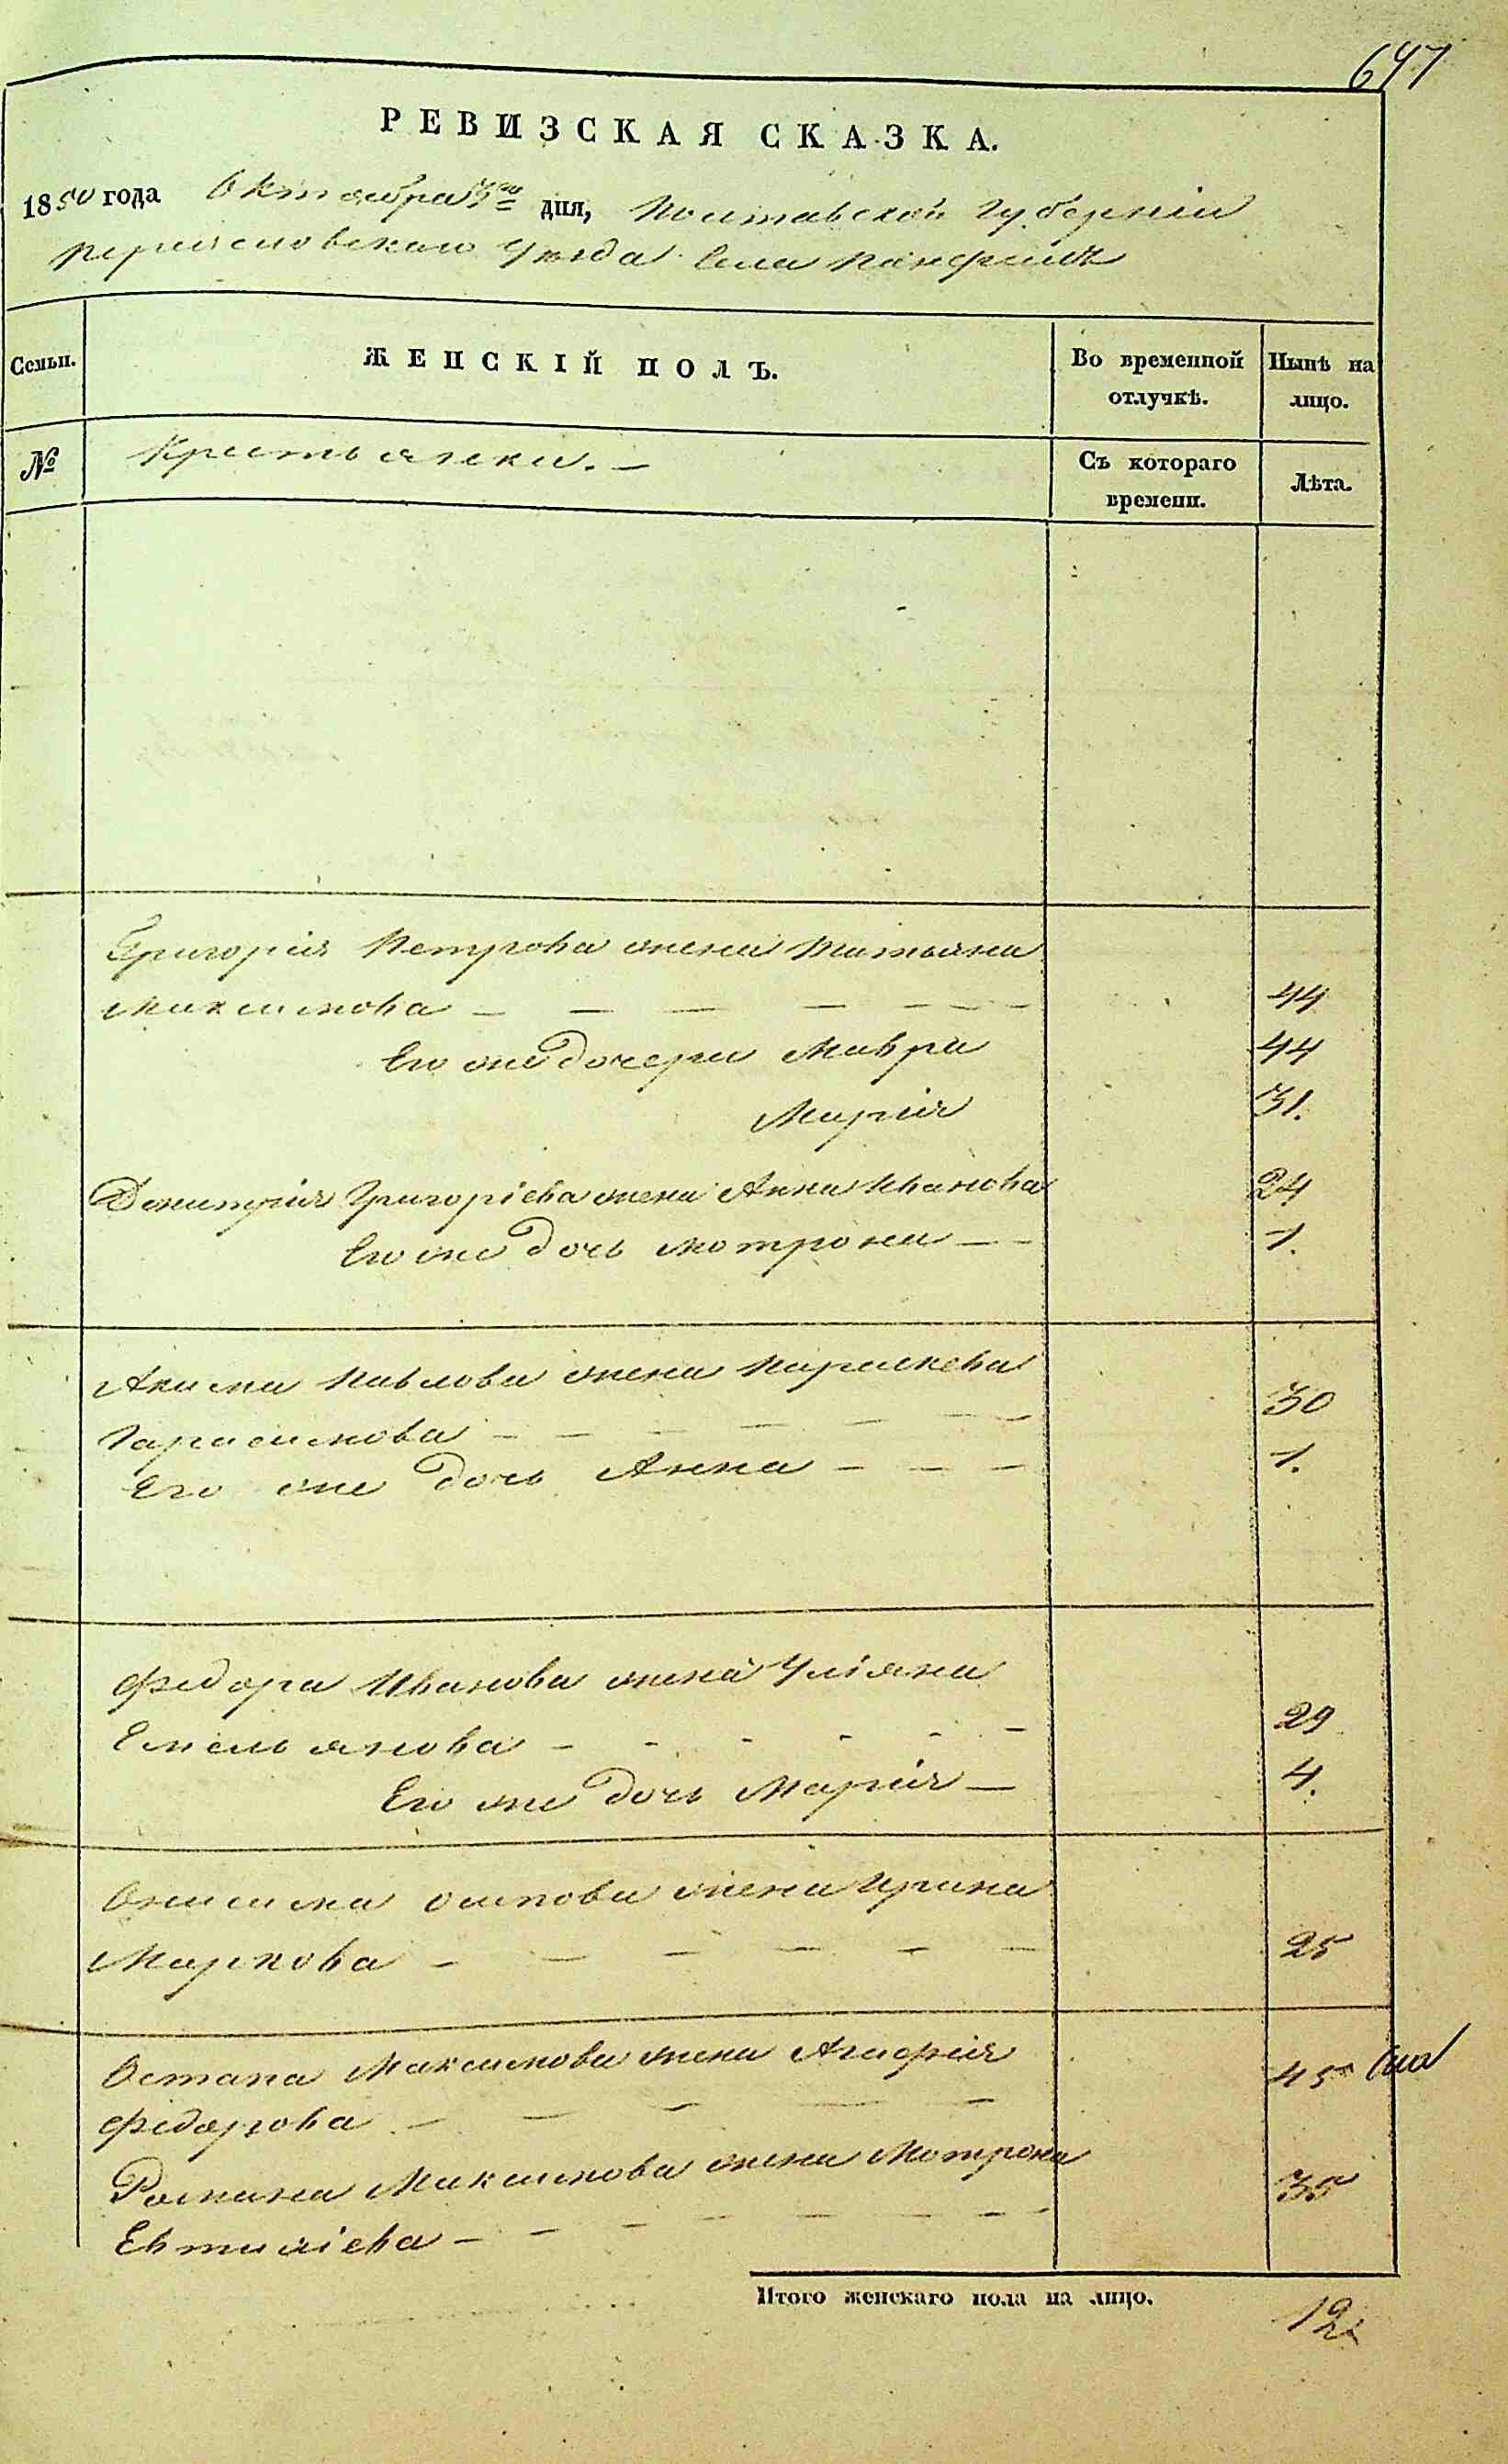 647
РЕВИЗСКАЯ СКАЗКА.
1850 года Октября 3го дня, Полтавской Губерніи
Переясловскаго Уѣзда Села Панфилъ
Семьи. ЖЕНСКІЙ ПОЛЪ. Во временной отлучкѣ. Нынѣ на лицо.
№ Крестьянки. — Съ котораго времени. Лѣта.
Григорія Петрова жена Татьяна
Максимова — — — — — — 44
Его же дочери Мавра 44
Марія 31.
Димитрія Григоріева жена Анна Иванова 24
Его же дочь Мотрона — — 1.
Акима Павлова жена Параскева
Гарасимова — — — — — — 30
Его же дочь Анна — — — 1.
Федора Иванова жена Уліяна
Емельянова — - - - - — 29
Его же дочь Марія — 4.
Онисима Осипова жена Ирина
Маркова — — — — — — 25
Остапа Максимова жена Агафія 45
Федорова — — — — —
Романа Максимова жена Мотрона 35
Евтихіева — — — — — — —
Итого женскаго пола на лицо. 12